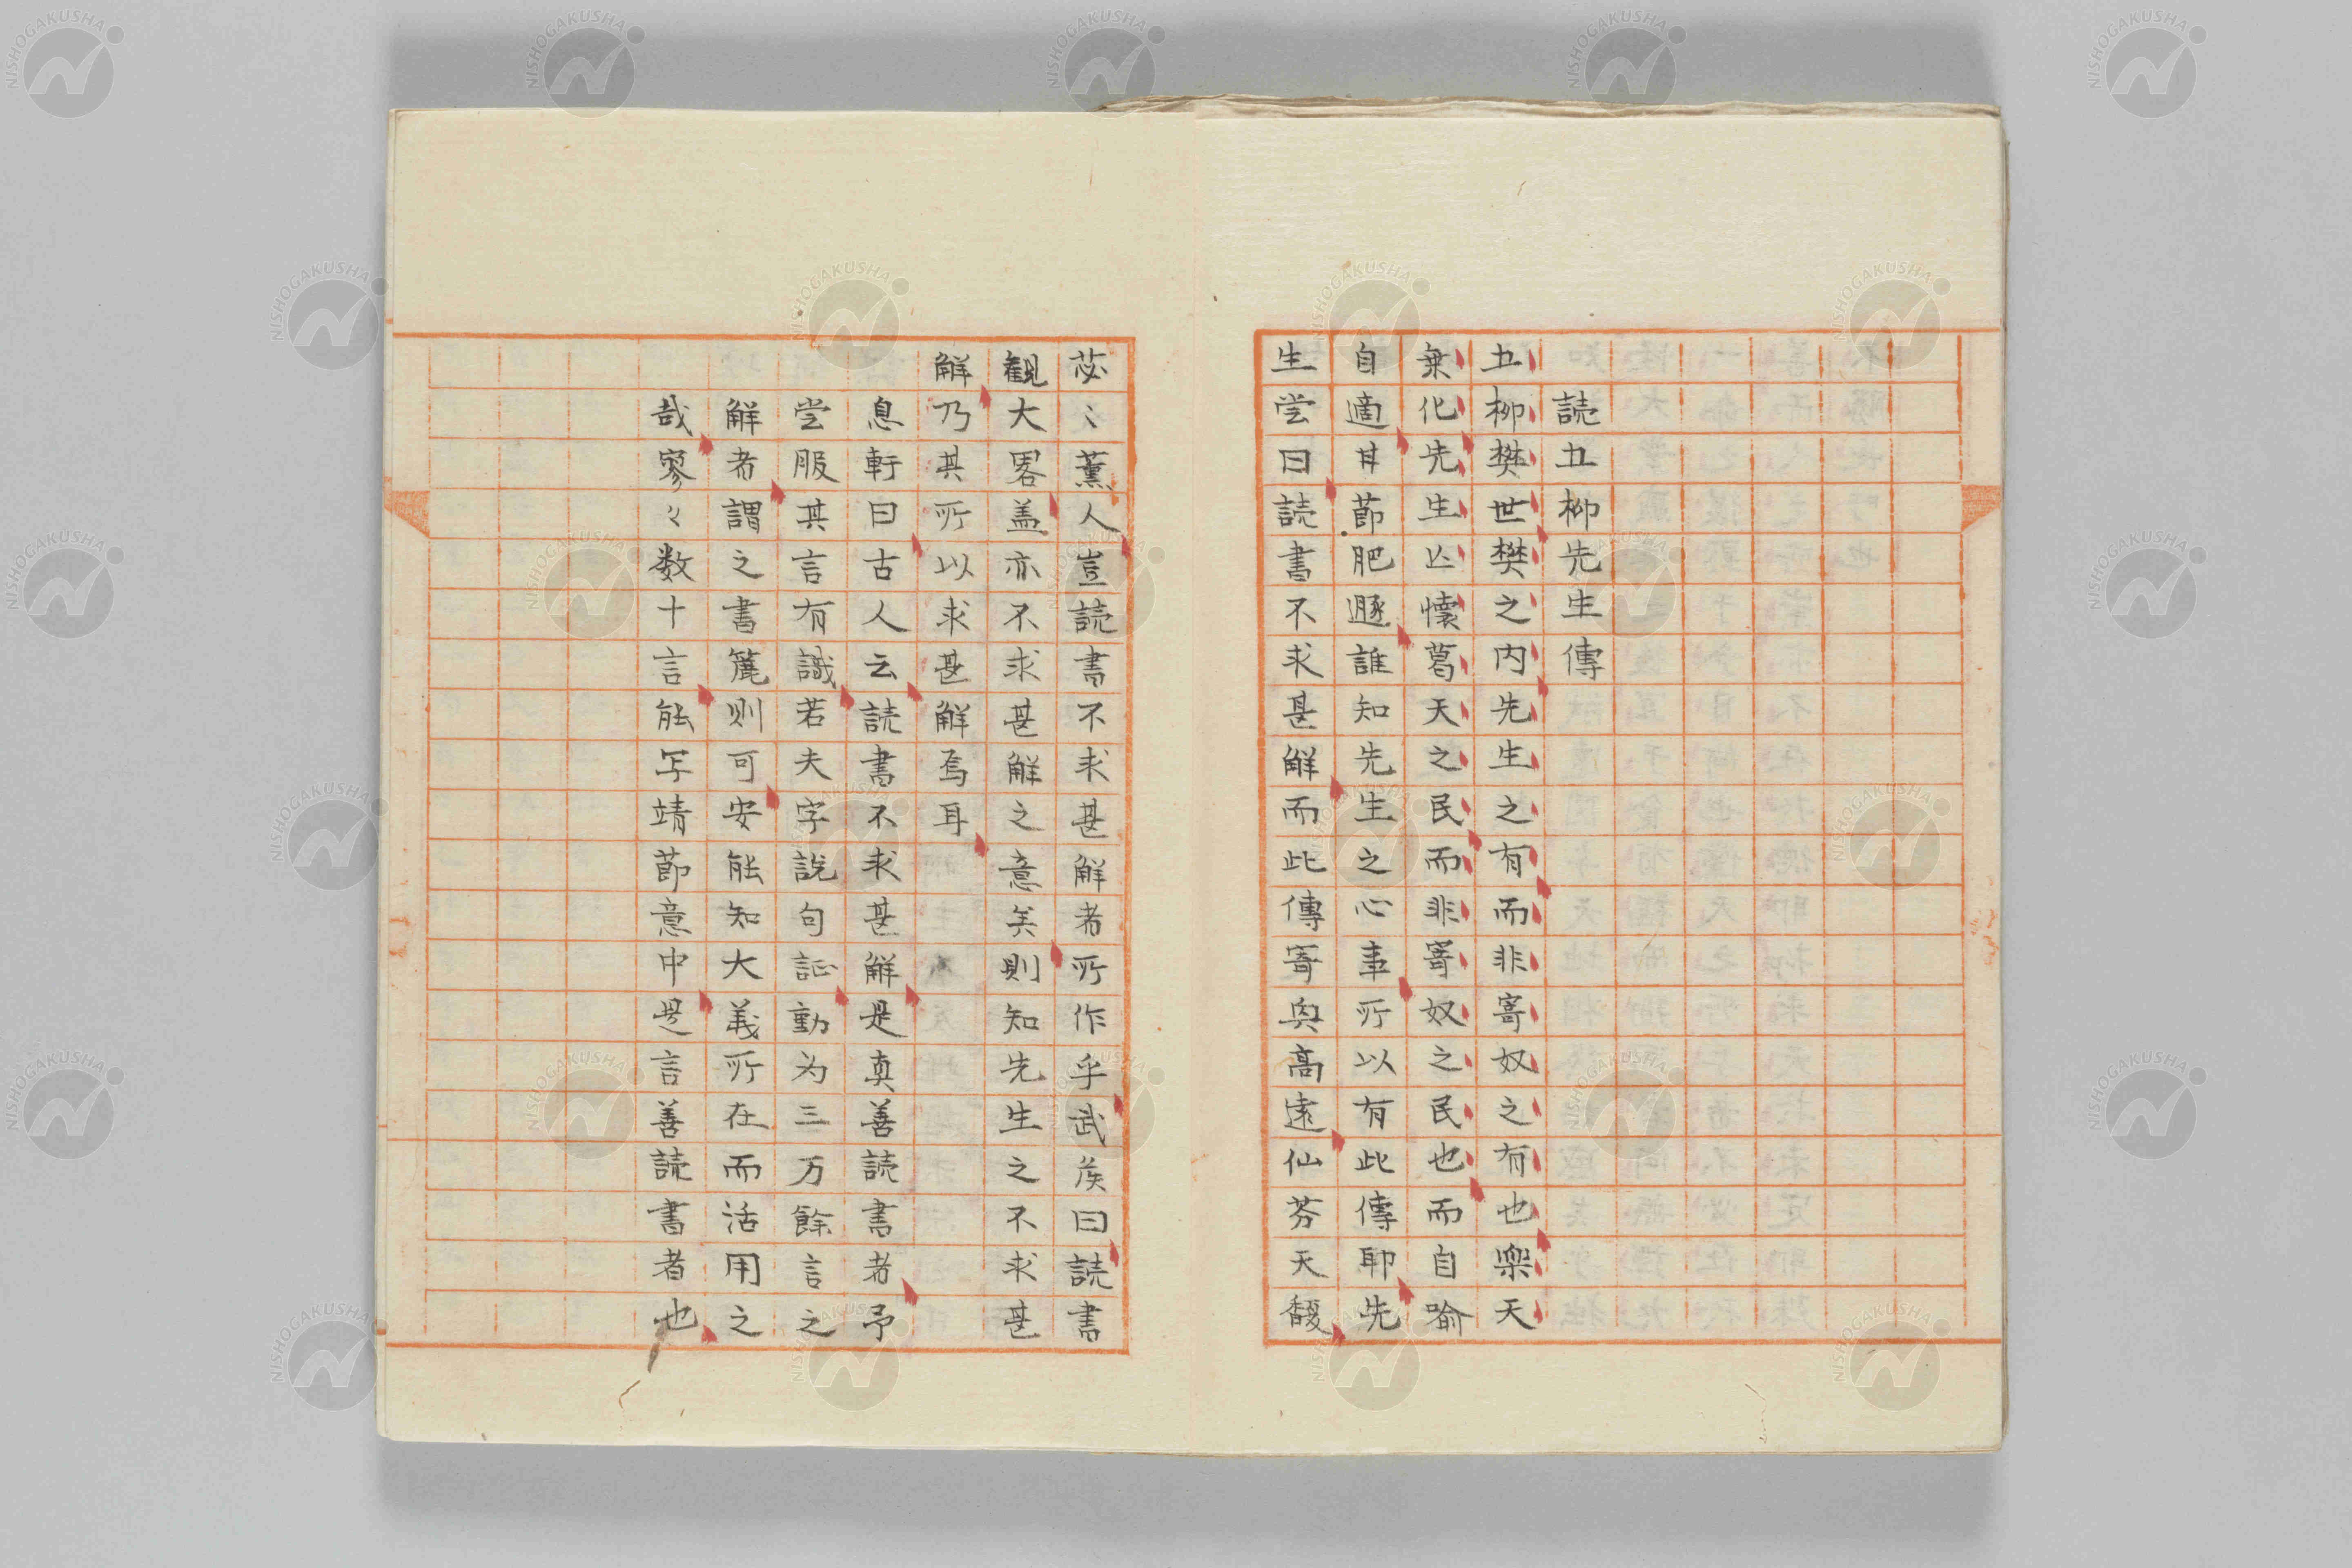 読五柳先生傳
五柳樊世樊之内先生之有而非寄奴之有也楽天
乗化先生亾懐葛天之民而非寄奴之民也而自喻
自適其節肥遯誰知先生之心事所以有此傳耶先
生嘗曰読書不求甚解而此傳寄興高遠仙芬天馥
苾〻薫人豈読書不求甚解者所作乎武侯曰読書
観大畧盖亦不求甚解之意矣則知先生之不求甚
解乃其所以求甚解焉耳
息軒曰古人云読書不求甚解是真善読書者予
嘗服其言有識若夫字説句証動为三万餘言之
解者謂之書簏則可安能知大義所在而活用之
哉寥々数十言能写靖節意中是言善読書者也
NISHOGAKUSHA